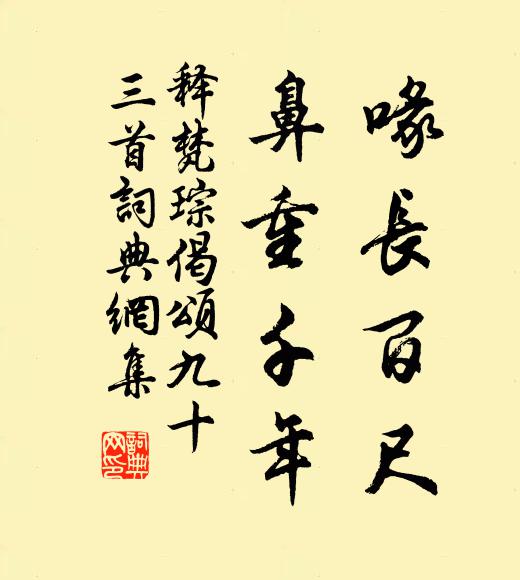 喙長百尺
鼻垂千年
释梵琮偈頌九十
三首詞典網集
詞典网印